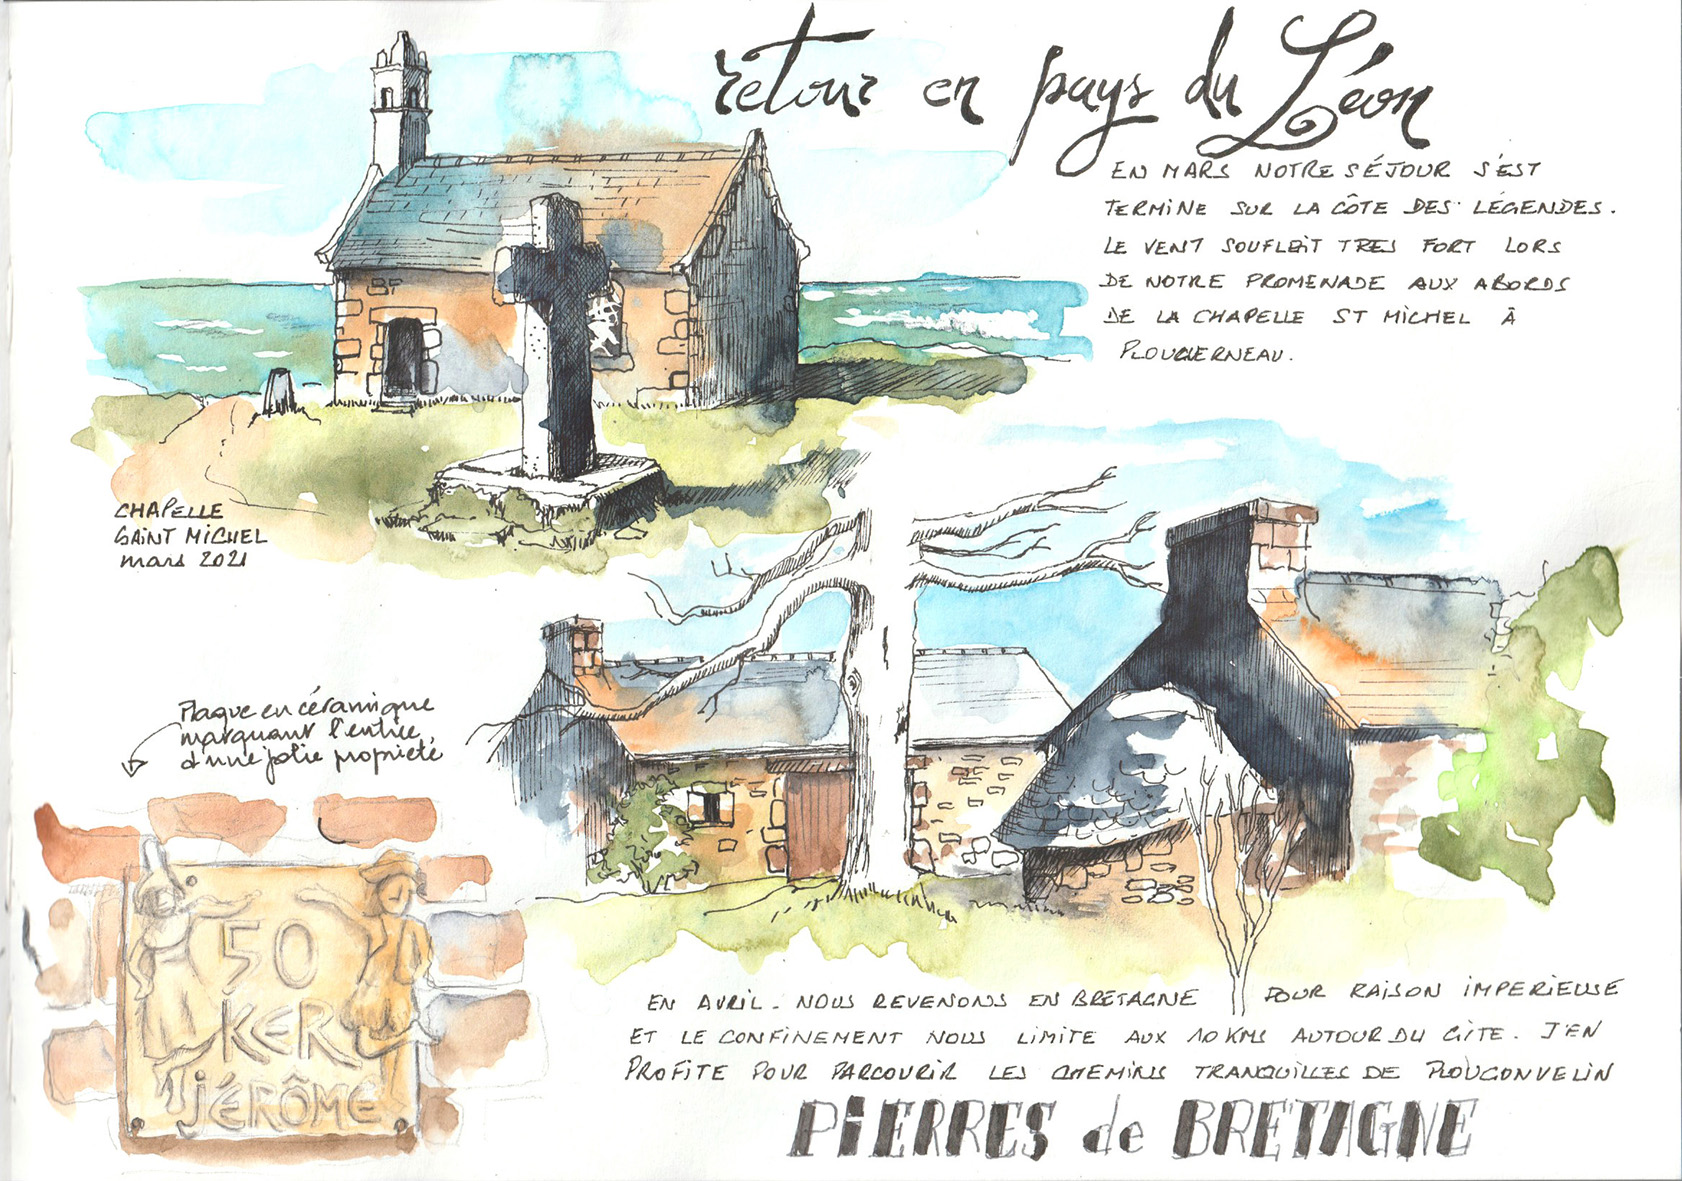 retour en pays du Léon
EN MARS NOTRE SÉJOUR S'EST
TERMINE SUR LA CÔTE DES LÉGENDES.
LE VENT SOUFLAIT TRES FORT LORS
DE NOTRE PROMENADE AUX ABORDS
DE LA CHAPELLE ST MICHEL À
PLOUGERNEAU.
CHAPELLE
SAINT MICHEL
mars 2021
Plaque en céramique
marquant l'entrée
d'une jolie propriété
50
KER
JÉRÔME
EN AVRIL. NOUS REVENONS EN BRETAGNE POUR RAISON IMPERIEUSE
ET LE CONFINEMENT NOUS LIMITE AUX 10 KMS AUTOUR DU GÎTE. J'EN
PROFITE POUR PARCOURIR LES CHEMINS TRANQUILLES DE PLOUGONVELIN
PIERRES de BRETAGNE